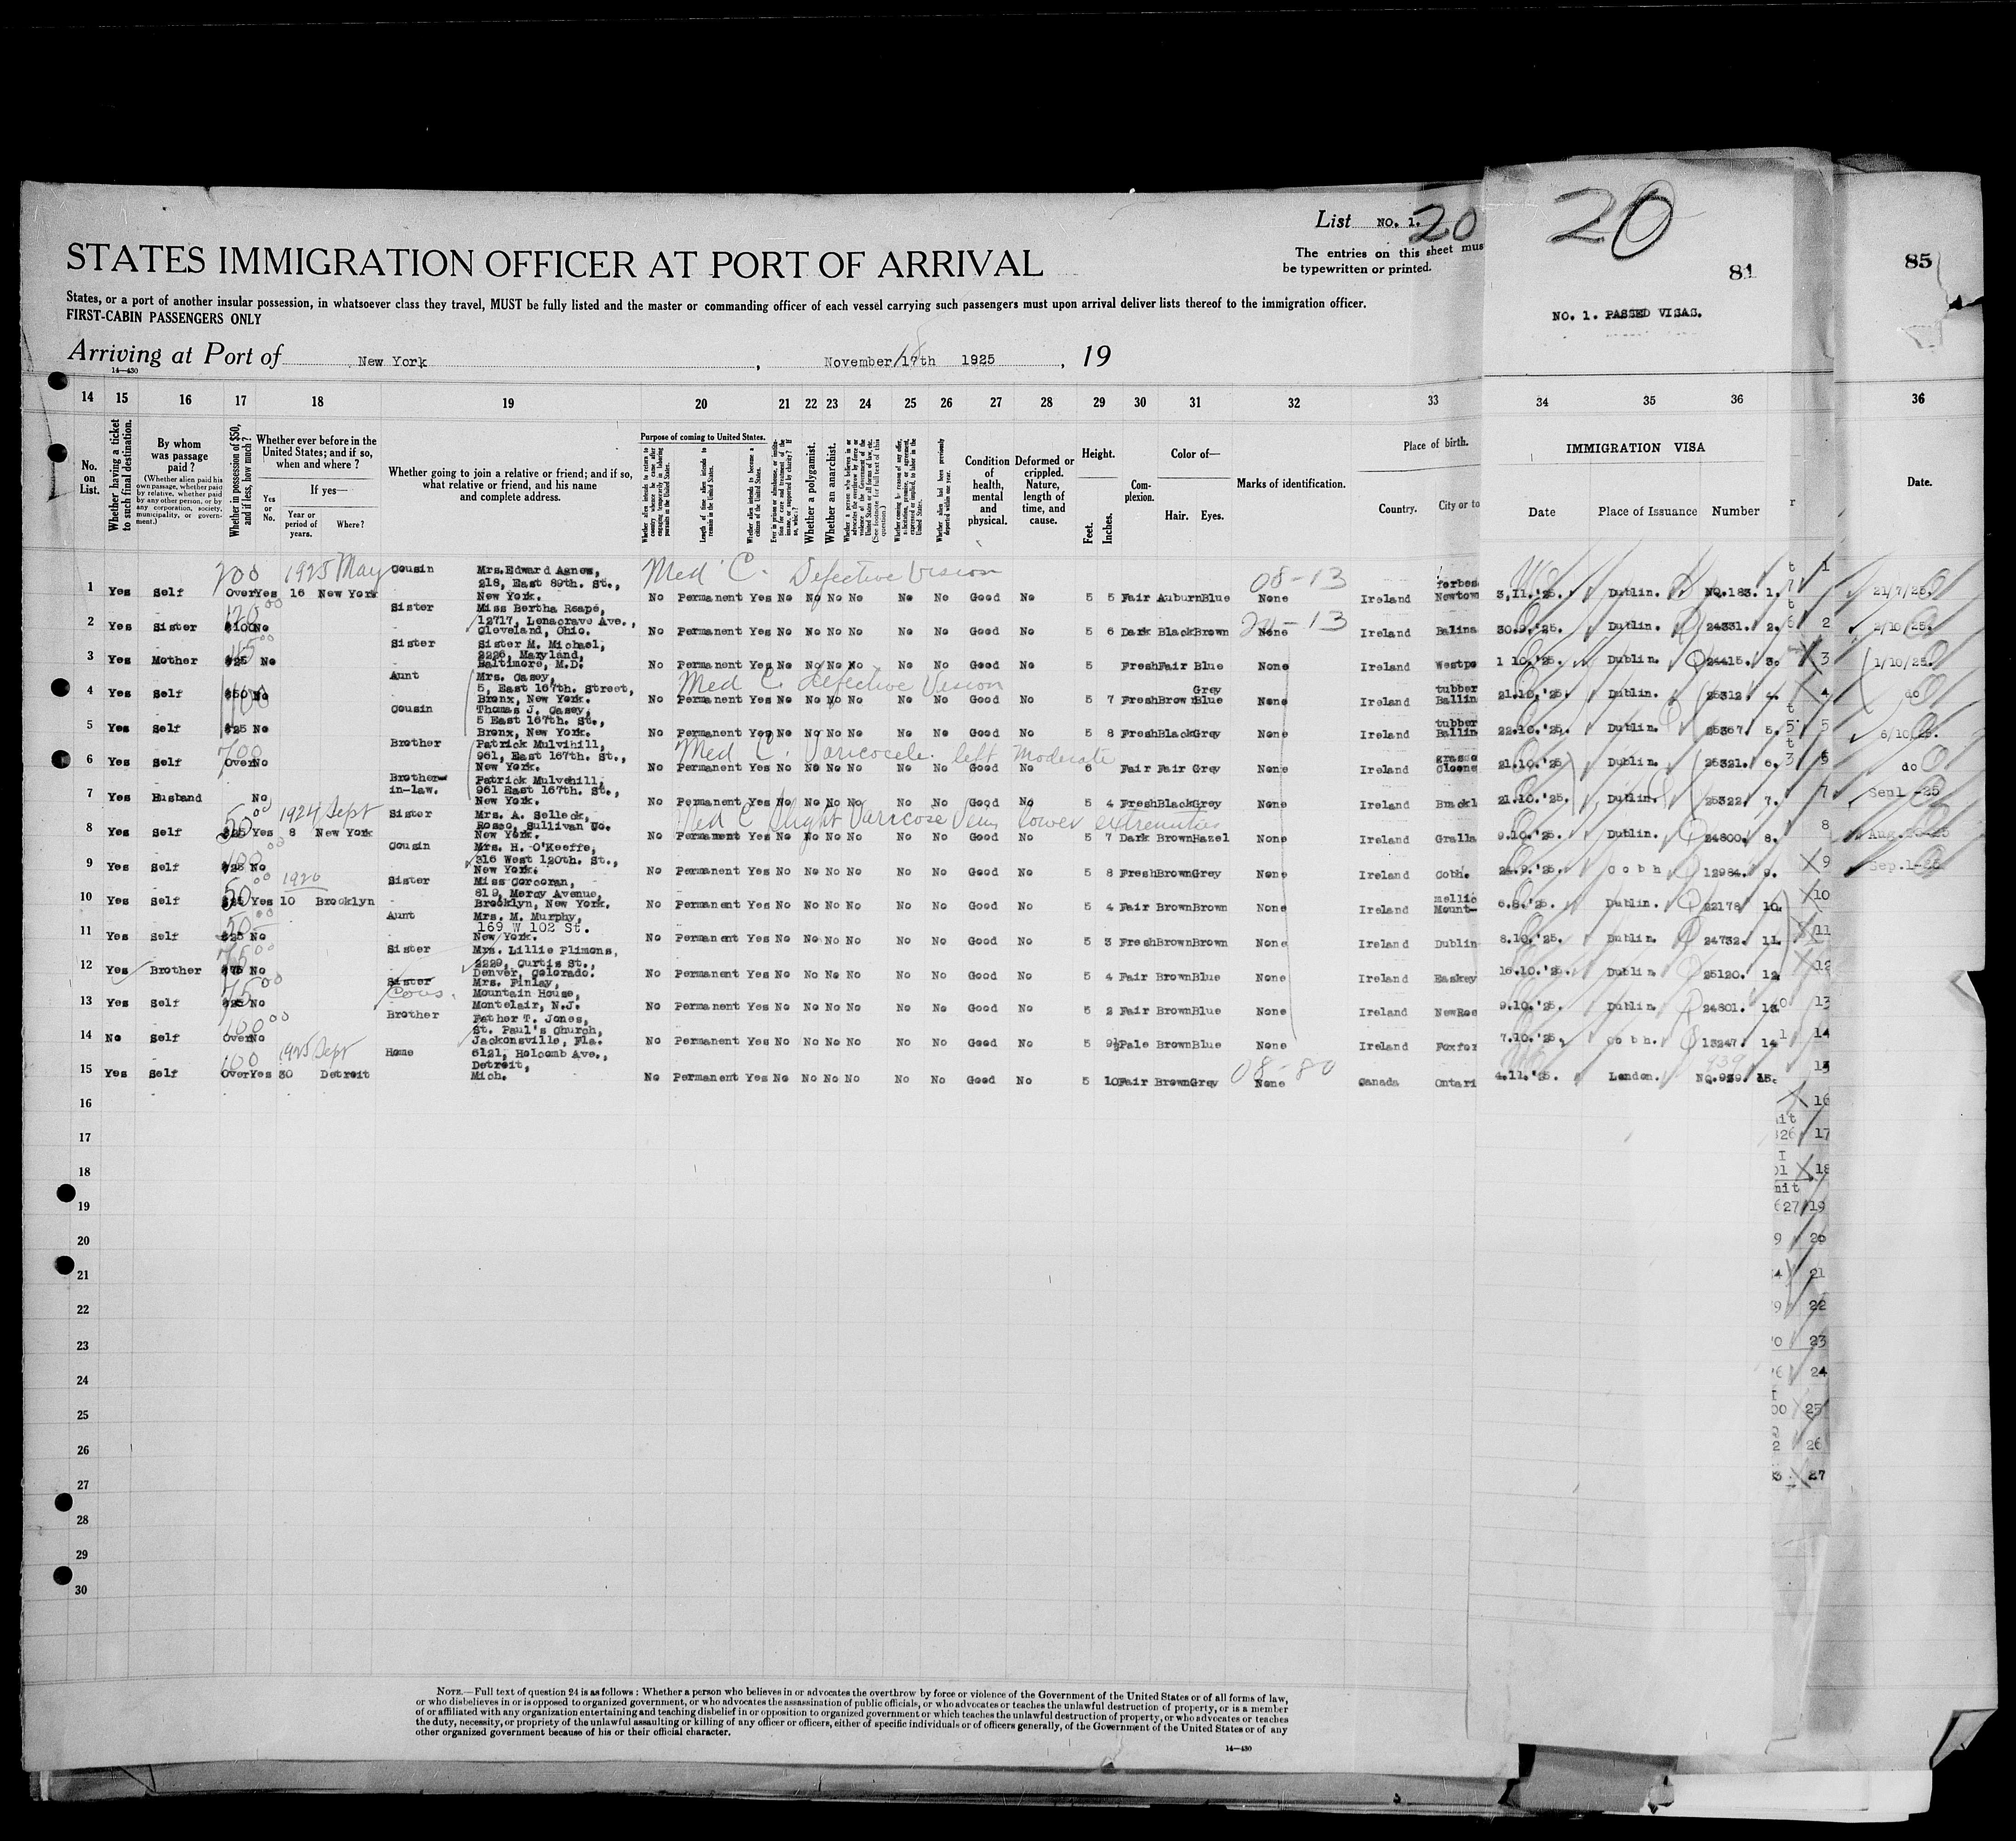 List NO. 1. 20
20
81
85
The entries on this sheet mus
be typewritten or printed.
STATES IMMIGRATION OFFICER AT PORT OF ARRIVAL
States, or a port of another insular possession, in whatsoever class they travel, MUST be fully listed and the master or commanding officer of each vessel carrying such passengers must upon arrival deliver lists thereof to the immigration officer.
FIRST-CABIN PASSENGERS ONLY
NO. 1. PASSED VISAS.
Arriving at Port of New York, November 17th 1925, 19
18
14—430
14 15 16 17 18 19 20 21 22 23 24 25 26 27 28 29 30 31 32 33 34 35 36 36
No. on List.
Whether having a ticket to such final destination.
By whom was passage paid?
(Whether alien paid his own passage, whether paid by relative, whether paid by any other person, or by any corporation, society, municipality, or government.)
Whether in possession of $50, and if less, how much?
Whether ever before in the United States; and if so, when and where?
Yes or No.
If yes—
Year or period of years.
Where?
Whether going to join a relative or friend; and if so, what relative or friend, and his name and complete address.
Purpose of coming to United States.
Length of time alien intends to remain in the United States.
Whether alien intends to become a citizen of the United States.
Whether a polygamist.
Whether an anarchist.
Condition of health, mental and physical.
Deformed or crippled. Nature, length of time, and cause.
Height.
Feet. Inches.
Complexion.
Color of—
Hair. Eyes.
Marks of identification.
Place of birth.
Country. City or to
IMMIGRATION VISA
Date Place of Issuance Number
Date.
200 1925 May Med C. Defective Vision 08-13
1 Yes Self Over Yes 16 New York Cousin Mrs. Edward Agnew, 218, East 89th. St., New York. No Permanent Yes No No No No No No Good No 5 5 Fair Auburn Blue None Ireland forbes Newtow 3,11.'25. Dublin. NO.183. 1. 21/7/25.
2 Yes Sister $100 No Sister Miss Bertha Reape, 12717, Lenacrave Ave., Cleveland, Ohio. No Permanent Yes No No No No No No Good No 5 6 Dark Black Brown None Ireland Balina 30.9.'25. Dublin. 24331. 2. 2/10/25.
3 Yes Mother $25 No Sister Sister M. Michael, 2226, Maryland, Baltimore, M.D. No Permanent Yes No No No No No No Good No 5 Fresh Fair Blue None Ireland Westpo 1 10.'25. Dublin. 24415. 3. 1/10/25.
Med C. Defective Vision
4 Yes Self $50 No Aunt Mrs. Casey, 5, East 167th. Street, Bronx, New York. No Permanent Yes No No No No No No Good No 5 7 Fresh Brown Grey Blue None Ireland tubber Ballin 21.10.'25. Dublin. 25312 4. do
5 Yes Self $25 No Cousin Thomas J. Casey, 5 East 167th. St., Bronx, New York. No Permanent Yes No No No No No No Good No 5 8 Fresh Black Grey None Ireland tubber Ballin 22.10.'25. Dublin. 25367 5. 6/10/25.
Med C. Varicocele left moderate
6 Yes Self Over No Brother Patrick Mulvihill, 961, East 167th. St., New York. No Permanent Yes No No No No No No Good No 6 Fair Fair Grey None Ireland Cloone 21.10.'25 Dublin. 25321. 6. do
7 Yes Husband No Brother-in-law. Patrick Mulvehill, 961 East 167th. St., New York. No Permanent Yes No No No No No No Good No 5 4 Fresh Black Grey None Ireland Brackl 21.10.'25. Dublin. 25322 7.
50 1924 Sept Med C Slight Varicose Veins lower extremities
8 Yes Self $25 Yes 8 New York Sister Mrs. A. Selleck, Rosco, Sullivan Co. New York. No Permanent Yes No No No No No No Good No 5 7 Dark Brown Hazel None Ireland Gralla 9.10.'25. Dublin. 24800. 8.
9 Yes Self $25 No Cousin Mrs. H. O'Keeffe, 316 West 120th. St., New York. No Permanent Yes No No No No No No Good No 5 8 Fresh Brown Grey None Ireland Cobh. 24.9.'25. Cobh 12984. 9. Sep.1-25
50 00 1926
10 Yes Self $25 Yes 10 Brooklyn Sister Miss Corcoran, 819, Mercy Avenue, Brooklyn, New York. No Permanent Yes No No No No No No Good No 5 4 Fair Brown Brown None Ireland mellic Mount- 6.8.'25. Dublin. 22178 10.
50 00
11 Yes Self $25 No Aunt Mrs. M. Murphy, 169 W 102 St. New York. No Permanent Yes No No No No No No Good No 5 3 Fresh Brown Brown None Ireland Dublin 8.10.'25. Dublin. 24732. 11.
12 Yes Brother $75 No Sister Mrs. Lillie Flimons, 2229, Curtis St., Denver, Colorado. No Permanent Yes No No No No No No Good No 5 4 Fair Brown Blue None Ireland Easkey 16.10.'25. Dublin 25120. 12.
75 00
13 Yes Self $25 No Sister Cous. Mrs. Finlay, Mountain House, Montclair, N.J. No Permanent Yes No No No No No No Good No 5 2 Fair Brown Blue None Ireland NewRos 9.10.'25. Dublin. 24801. 13.
100 00
14 No Self Over No Brother Father T. Jones, St. Paul's Church, Jacksonville, Fla. No Permanent Yes No No No No No No Good No 5 9½ Pale Brown Blue None Ireland Foxfor 7.10.'25. Cobh. 13247. 14
100 1925 Sept 08-80
15 Yes Self Over Yes 30 Detroit Home 6121, Holcomb Ave., Detroit, Mich. No Permanent Yes No No No No No No Good No 5 10 Fair Brown Grey None Canada Ontari 4.11.'25. London. NO.939. 15.
16
17
18
19
20
21
22
23
24
25
26
27
28
29
30
NOTE.—Full text of question 24 is as follows: Whether a person who believes in or advocates the overthrow by force or violence of the Government of the United States or of all forms of law,
or who disbelieves in or is opposed to organized government, or who advocates the assassination of public officials, or who advocates or teaches the unlawful destruction of property, or is a member
of or affiliated with any organization entertaining and teaching disbelief in or opposition to organized government or which teaches the unlawful destruction of property, or who advocates or teaches
the duty, necessity, or propriety of the unlawful assaulting or killing of any officer or officers, either of specific individuals or of officers generally, of the Government of the United States or of any
other organized government because of his or their official character.
14—430